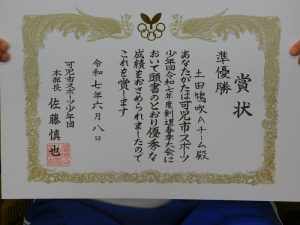 賞状
準優勝
土田鳩吹Aチーム殿
あなたがたは可児市スポーツ
少年団令和七年度剣道春季大会に
おいて頭書のとおり優秀な
成績をおさめられましたので
これを賞します
令和七年六月八日
可児市スポーツ少年団
本部長 佐藤慎也